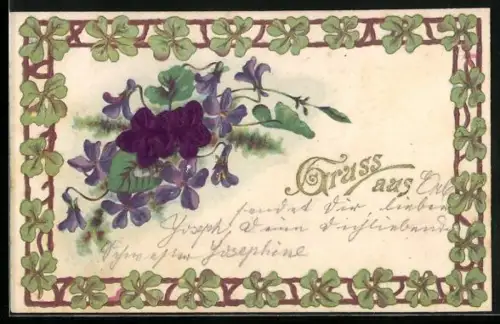 Gruss
aus
sendet Dir, lieber
Joseph, Deine Dichliebende
Schwester Josephine